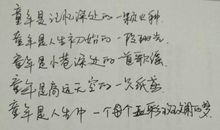 童年是记忆深处的一颗火种
童年是人生中初始的一段阳光
童年是小巷深处的一首歌谣
童年是高远天空的一只纸鸢
童年是人生中一个个五彩斑斓的梦